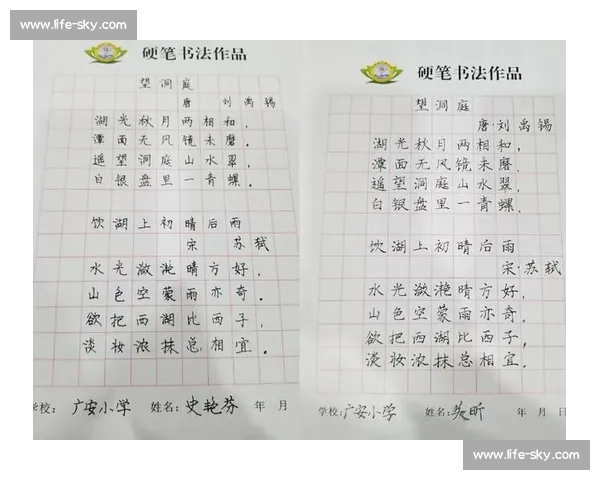 www.life-sky.com
硬笔书法作品
望洞庭
唐 刘禹锡
湖光秋月两相和，
潭面无风镜未磨。
遥望洞庭山水翠，
白银盘里一青螺。
饮湖上初晴后雨
宋 苏轼
水光潋滟晴方好，
山色空蒙雨亦奇。
欲把西湖比西子，
淡妆浓抹总相宜。
学校：广安小学 姓名：史艳芬 年 月
硬笔书法作品
望洞庭
唐·刘禹锡
湖光秋月两相和，
潭面无风镜未磨。
遥望洞庭山水翠，
白银盘里一青螺。
饮湖上初晴后雨
宋·苏轼
水光潋滟晴方好，
山色空蒙雨亦奇。
欲把西湖比西子，
淡妆浓抹总相宜。
学校：广安小学 姓名：吴昕 年 月 日
www.life-sky.com